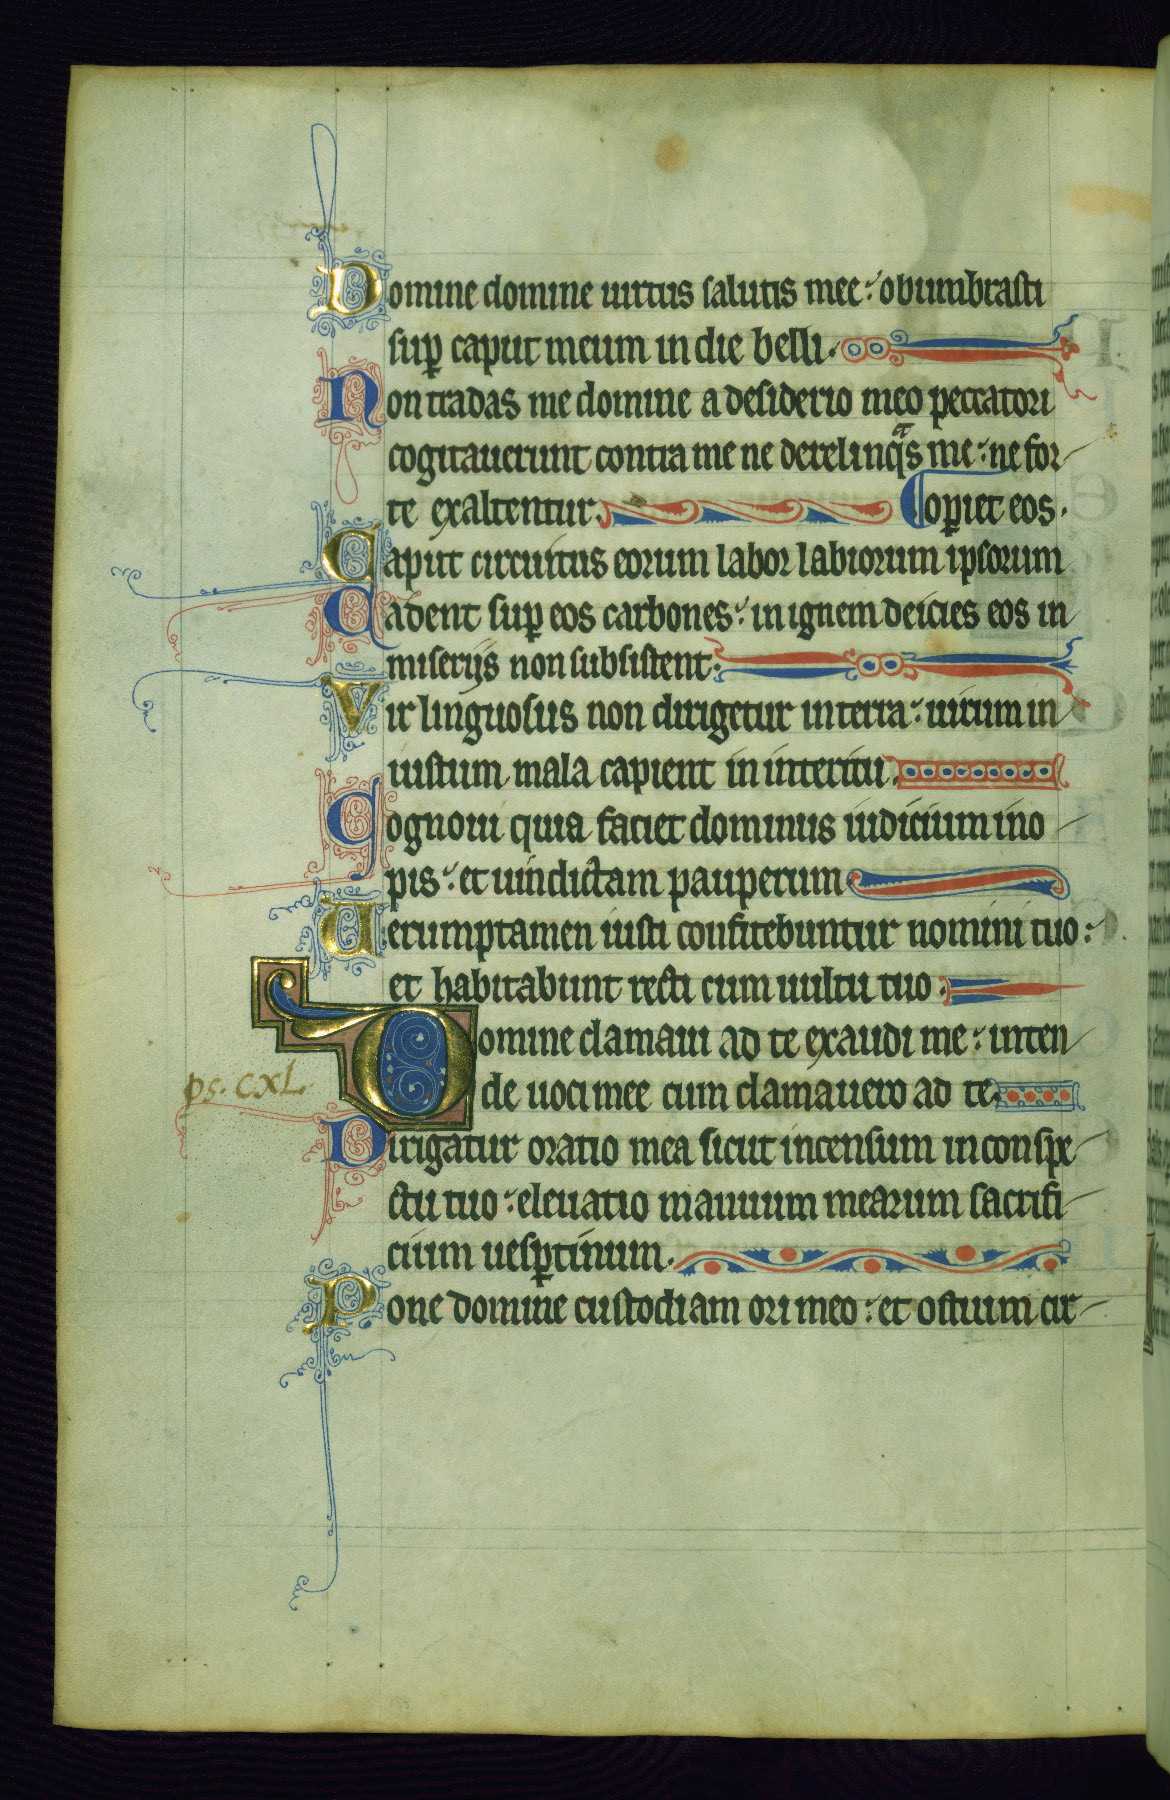 Domine domine uirtus salutis mee: obumbrasti
sup caput meum in die belli.
Non tradas me domine a desiderio meo peccatori
cogitauerunt contra me ne derelinqs me: ne for
te exaltentur. Copiet eos.
Caput circuitus eorum labor labiorum ipsorum
Cadent sup eos carbones: in ignem deicies eos in
miserijs non subsistent:
Vir linguosus non dirigetur in terra: uirum in
iustum mala capient in interitu.
Cognoui quia faciet dominus iudicium ino
pis: et uindictam pauperum
Uerumptamen iusti confitebuntur nomini tuo:
et habitabunt recti cum uultu tuo:
Domine clamaui ad te exaudi me: inten
ps. CXL
de uoci mee cum clamauero ad te.
Dirigatur oratio mea sicut incensum in conspe
ctu tuo: eleuatio manuum mearum sacrifi
cium uesptinum.
Pone domine custodiam ori meo: et ostium cir